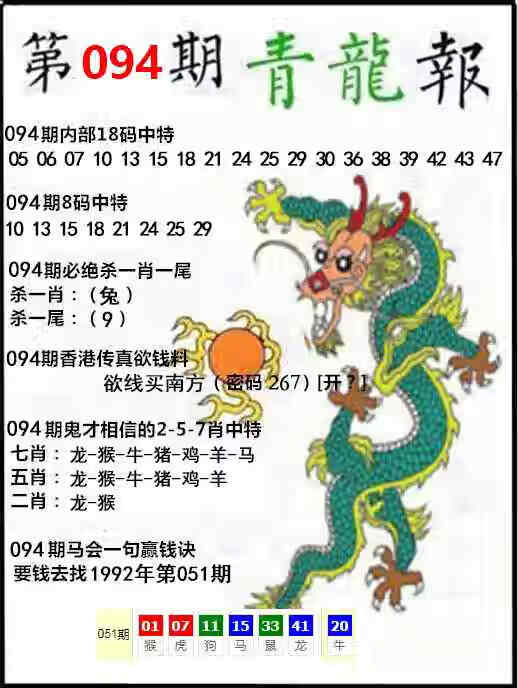 第094期青龍報
094期内部18码中特
05 06 07 10 13 15 18 21 24 25 29 30 36 38 39 42 43 47
094期8码中特
10 13 15 18 21 24 25 29
094期必绝杀一肖一尾
杀一肖：（兔）
杀一尾：（9）
094期香港传真欲钱料
欲线买南方（密码 267）[开？]
094期鬼才相信的2-5-7肖中特
七肖：龙-猴-牛-猪-鸡-羊-马
五肖：龙-猴-牛-猪-鸡-羊
二肖：龙-猴
094期马会一句赢钱诀
要钱去找1992年第051期
051期 01 07 11 15 33 41 20
猴 虎 狗 马 鼠 龙 牛